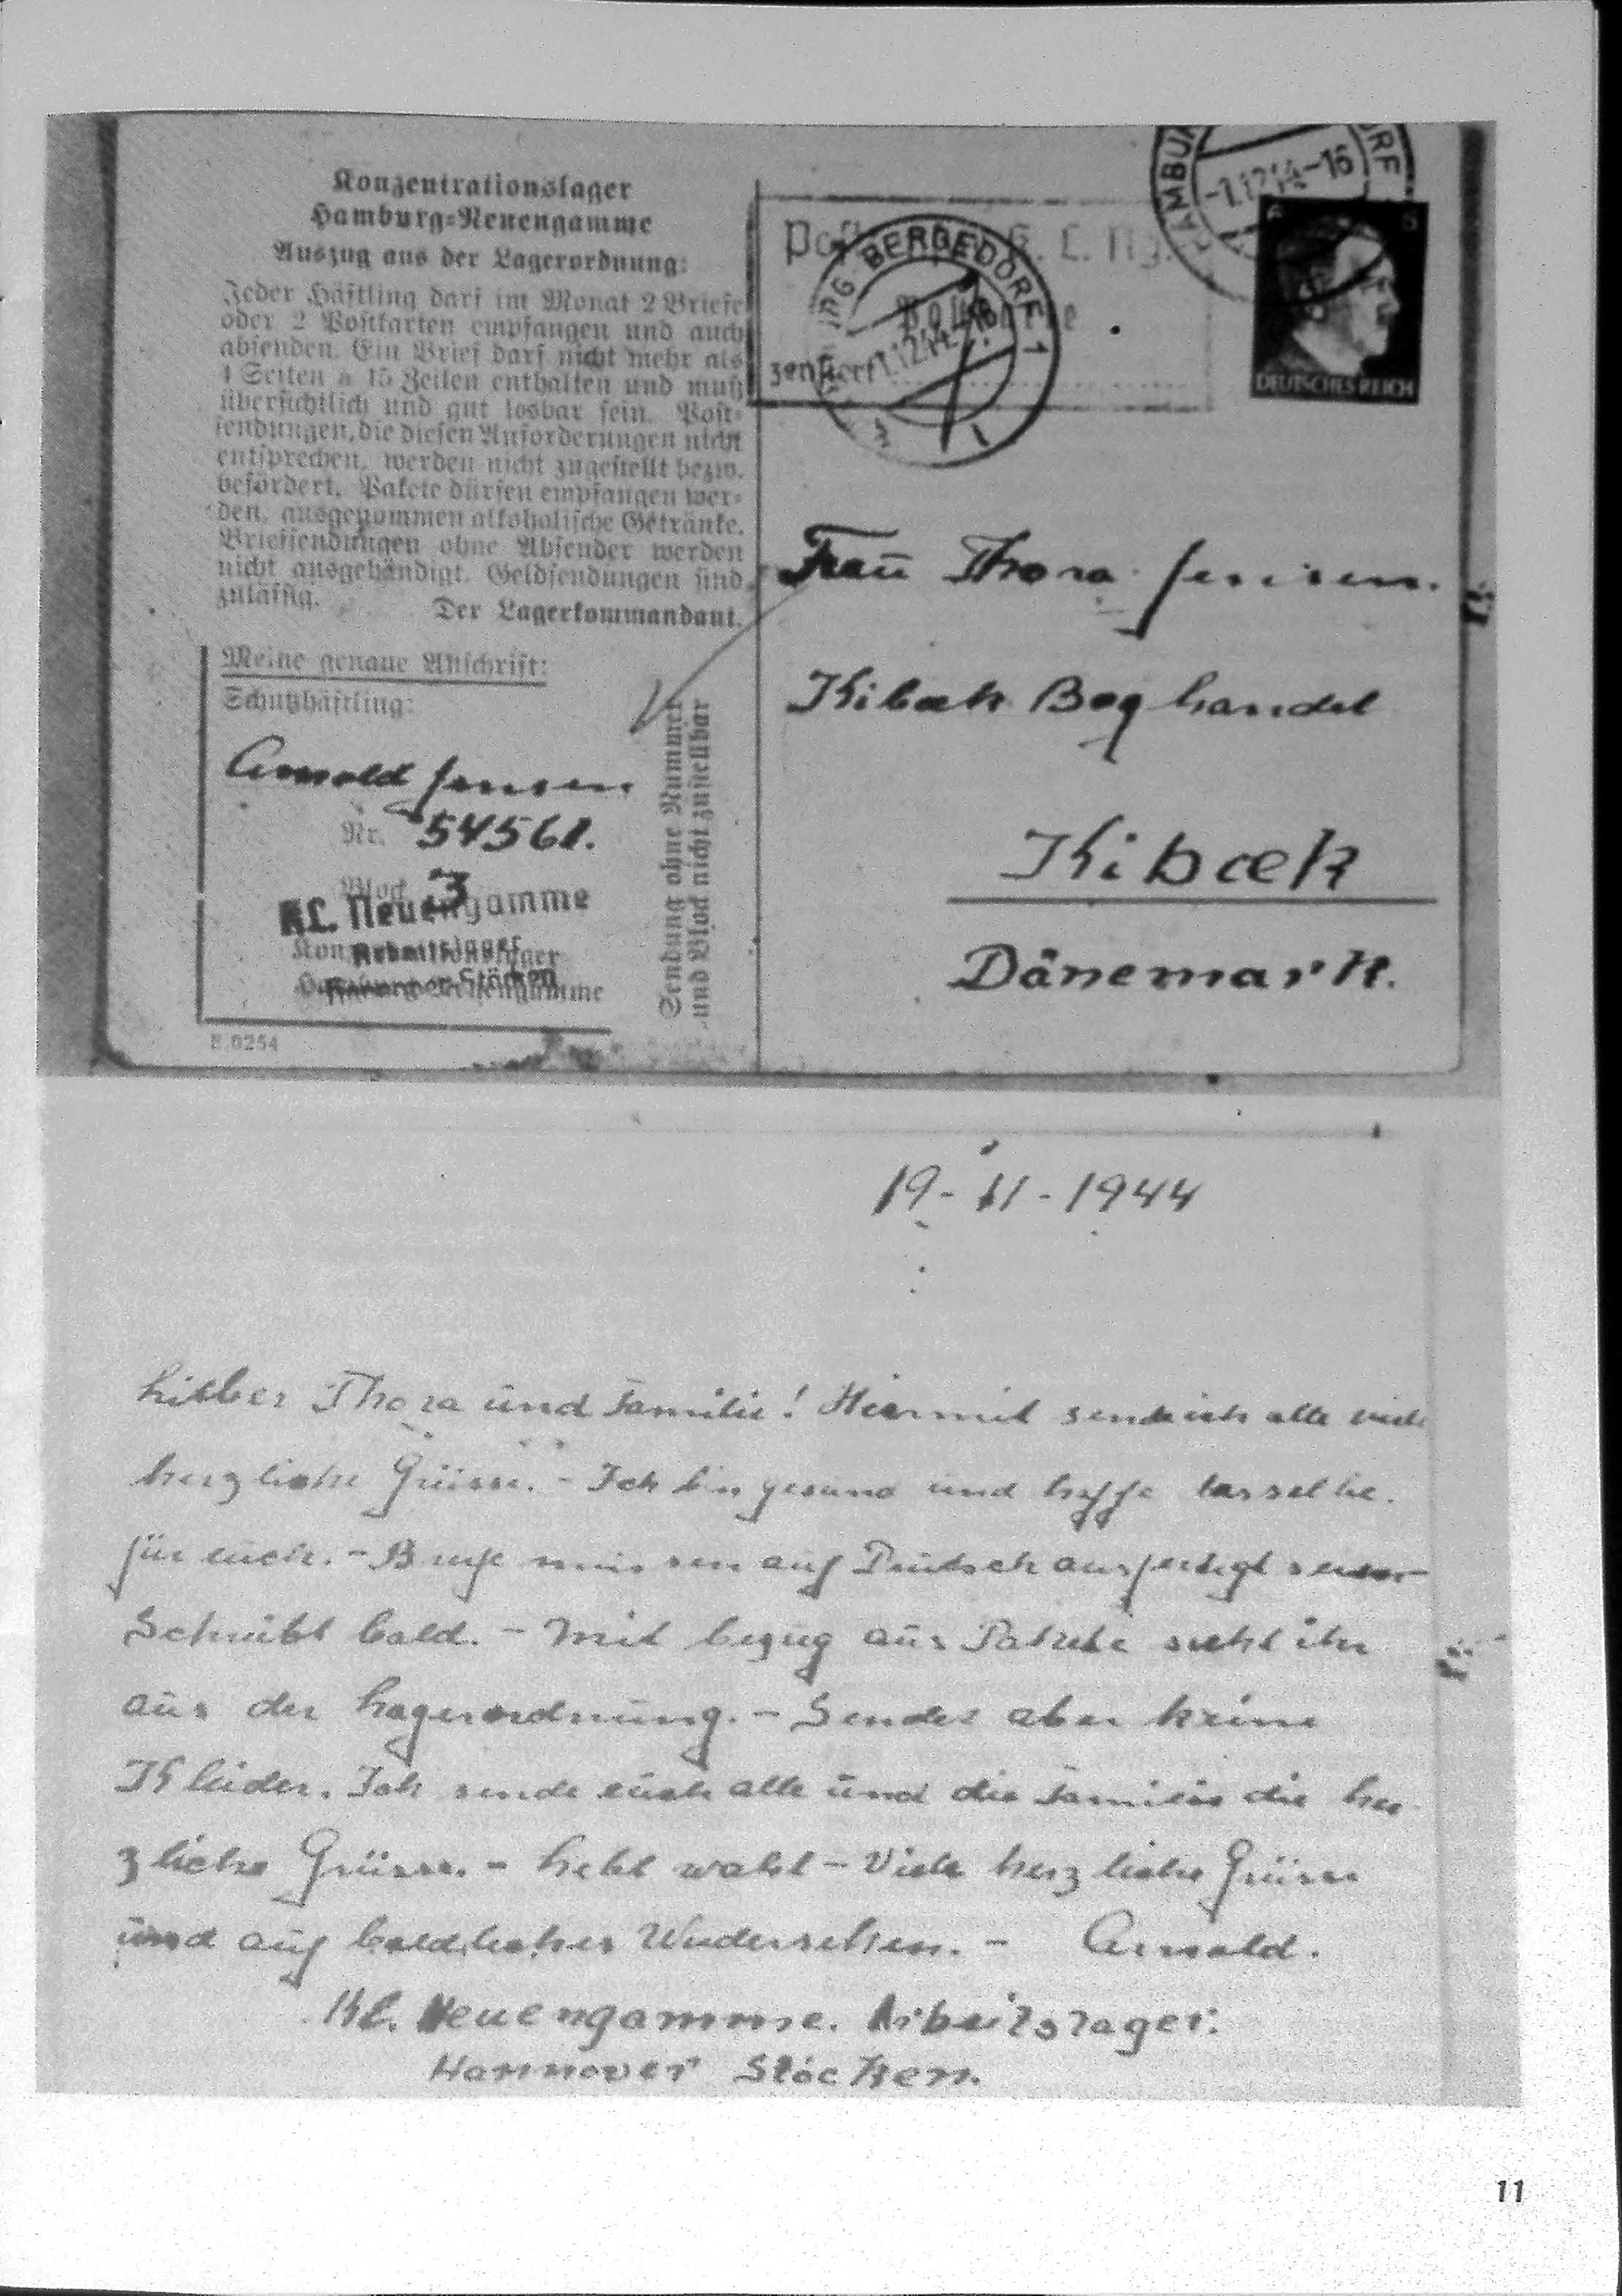 Konzentrationslager
Hamburg-Neuengamme
Auszug aus der Lagerordnung:
Jeder Häftling darf im Monat 2 Briefe
oder 2 Postkarten empfangen und auch
absenden. Ein Brief darf nicht mehr als
4 Seiten a 15 Zeilen enthalten und muß
übersichtlich und gut lesbar sein. Post-
sendungen, die diesen Anforderungen nicht
entsprechen, werden nicht zugestellt bezw.
befördert. Pakete dürfen empfangen wer-
den, ausgenommen alkoholische Getränke.
Briefsendungen ohne Absender werden
nicht ausgehändigt. Geldsendungen sind
zulässig.
Der Lagerkommandant.
Meine genaue Anschrift:
Schutzhäftling:
Arnold Jensen
Nr. 54561.
Block 3
KL. Neuengamme
Arbeitslager
Sendung ohne Nummer
und Block nicht zustellbar
zensiert
BERGEDORF 1
DEUTSCHES REICH
Frau Thora Jensen.
Kibæk Boghandel
Kibæk
Dänemark.
19-11-1944
Lieber Thora und Familie! Hiermit sende ich alle viele
herzliche Grüsse. - Ich bin gesund und hoffe dasselbe
für euch. - Briefe müssen auf Deutsch ausfertigt
Schreibt bald. - Mit bezug aus Pakete seht ihr
aus der Lagerordnung. - Sendet aber keine
Kleider. Ich sende euch alle und die Familie die her-
zliche Grüsse. - Lebt wohl - Viele herzliche Grüsse
und auf baldliches Wiedersehen. - Arnold.
Kl. Neuengamme. Arbeitslager.
Hannover Stöcken.
11